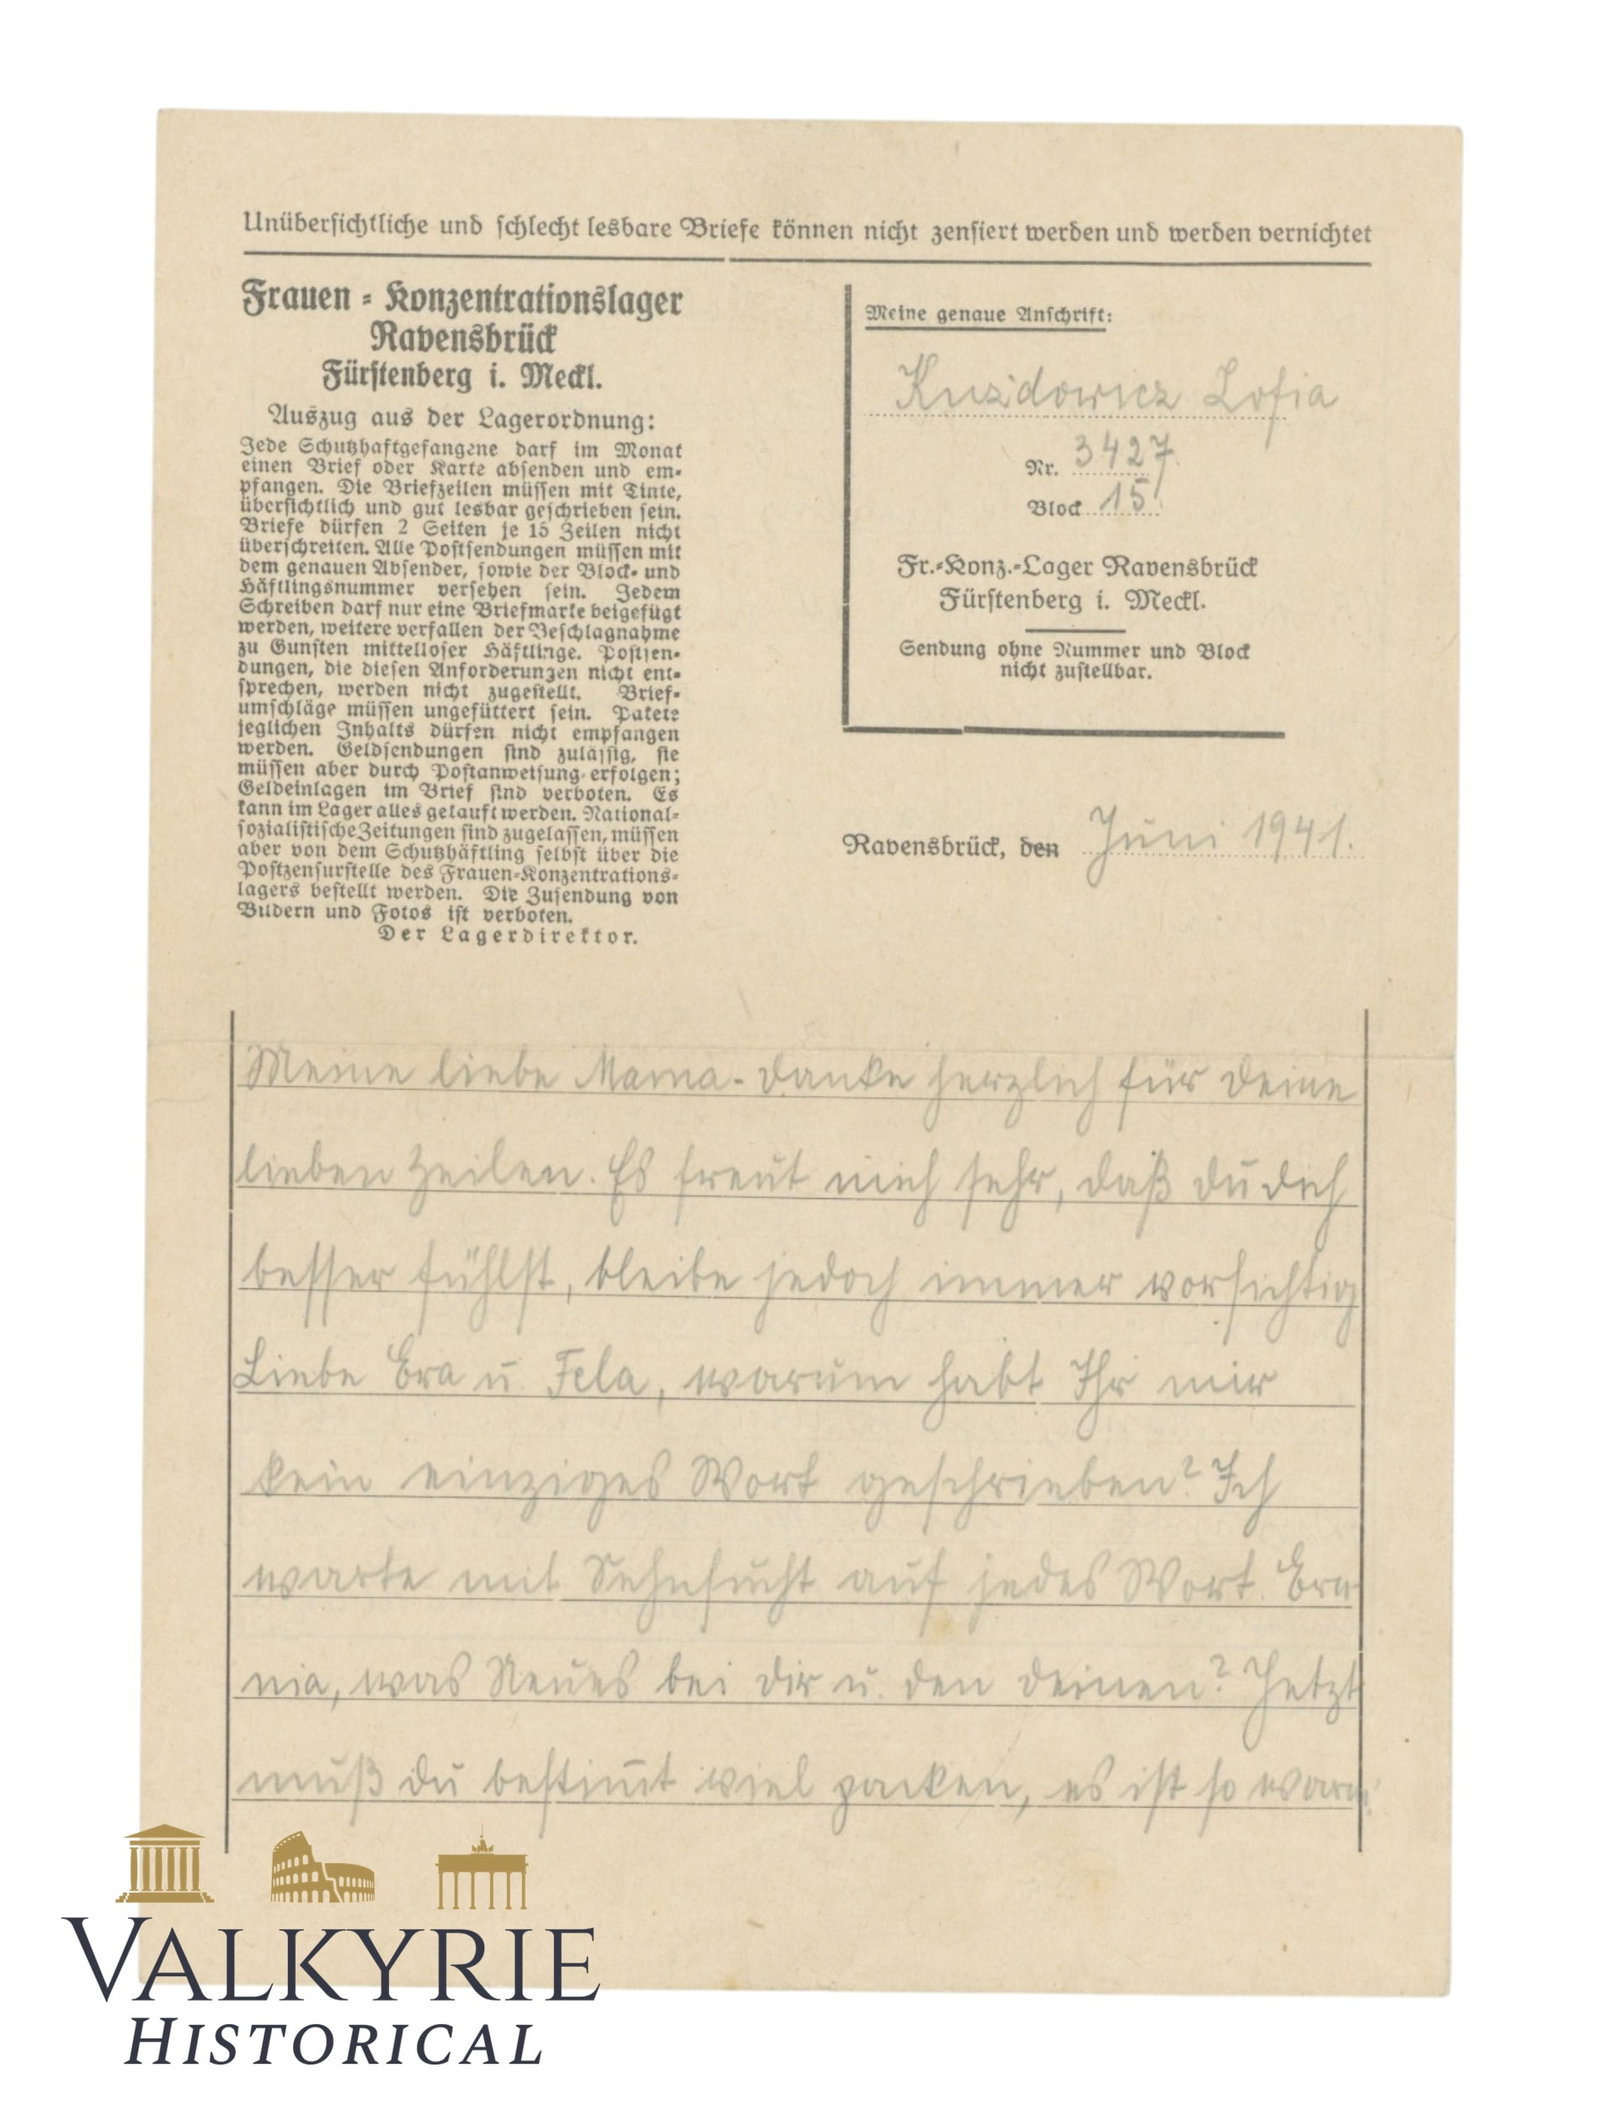 Unübersichtliche und schlecht lesbare Briefe können nicht zensiert werden und werden vernichtet
Frauen-Konzentrationslager
Ravensbrück
Fürstenberg i. Meckl.
Auszug aus der Lagerordnung:
Jede Schutzhaftgefangene darf im Monat
einen Brief oder Karte absenden und em-
pfangen. Die Briefzeilen müssen mit Tinte,
übersichtlich und gut lesbar geschrieben sein.
Briefe dürfen 2 Seiten je 15 Zeilen nicht
überschreiten. Alle Postsendungen müssen mit
dem genauen Absender, sowie der Block- und
Häftlingsnummer versehen sein. Jedem
Schreiben darf nur eine Briefmarke beigefügt
werden, weitere verfallen der Beschlagnahme
zu Gunsten mittelloser Häftlinge. Postsen-
dungen, die diesen Anforderungen nicht ent-
sprechen, werden nicht zugestellt. Brief-
umschläge müssen ungefüttert sein. Pakete
jeglichen Inhalts dürfen nicht empfangen
werden. Geldsendungen sind zulässig, sie
müssen aber durch Postanweisung erfolgen;
Geldeinlagen im Brief sind verboten. Es
kann im Lager alles gekauft werden. National-
sozialistische Zeitungen sind zugelassen, müssen
aber von dem Schutzhäftling selbst über die
Postzensurstelle des Frauen-Konzentrations-
lagers bestellt werden. Die Zusendung von
Bildern und Fotos ist verboten.
Der Lagerdirektor.
Meine genaue Anschrift:
Kuzdowicz Zofia
Nr. 3427.
Block 15.
Fr.-Konz.-Lager Ravensbrück
Fürstenberg i. Meckl.
Sendung ohne Nummer und Block
nicht zustellbar.
Ravensbrück, den Juni 1941.
Meine liebe Mama - danke herzlich für deine
lieben Zeilen. Es freut mich sehr, daß du dich
besser fühlst, bleibe jedoch immer vorsichtig
Liebe Era u. Fela, warum habt Ihr mir
kein einziges Wort geschrieben? Ich
warte mit Sehnsucht auf jedes Wort. Era
nia, was Neues bei dir u. den deinen? Jetzt
muß du bestimt viel packen, es ist so warm!
VALKYRIE
HISTORICAL